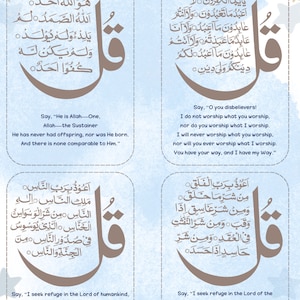 قُلْ
هُوَ اللَّهُ أَحَدٌ
اللَّهُ الصَّمَدُ لَمْ
يَلِدْ وَلَمْ يُولَدْ
وَلَمْ يَكُن لَّهُ
كُفُوًا أَحَدٌ
Say, "He is Allah—One,
Allah—the Sustainer
He has never had offspring, nor was He born.
And there is none comparable to Him."
قُلْ
أَعْبُدُ مَا تَعْبُدُونَ وَلَا أَنتُمْ
عَابِدُونَ مَا أَعْبُدُ وَلَا أَنَا
عَابِدٌ مَّا عَبَدتُّمْ وَلَا أَنتُمْ
عَابِدُونَ مَا أَعْبُدُ لَكُمْ
دِينُكُمْ وَلِيَ دِينِ
Say, "O you disbelievers!
I do not worship what you worship,
nor do you worship what I worship.
I will never worship what you worship,
nor will you ever worship what I worship.
You have your way, and I have my Way."
قُلْ
أَعُوذُ بِرَبِّ النَّاسِ
مَلِكِ النَّاسِ إِلَٰهِ
النَّاسِ مِن شَرِّ الْوَسْوَاسِ
الْخَنَّاسِ الَّذِي يُوَسْوِسُ
فِي صُدُورِ النَّاسِ مِنَ
الْجِنَّةِ وَالنَّاسِ
Say, "I seek refuge in the Lord of humankind,
قُلْ
أَعُوذُ بِرَبِّ الْفَلَقِ
مِن شَرِّ مَا خَلَقَ
وَمِن شَرِّ غَاسِقٍ إِذَا
وَقَبَ وَمِن شَرِّ النَّفَّاثَاتِ
فِي الْعُقَدِ وَمِن شَرِّ
حَاسِدٍ إِذَا حَسَدَ
Say, "I seek refuge in the Lord of the